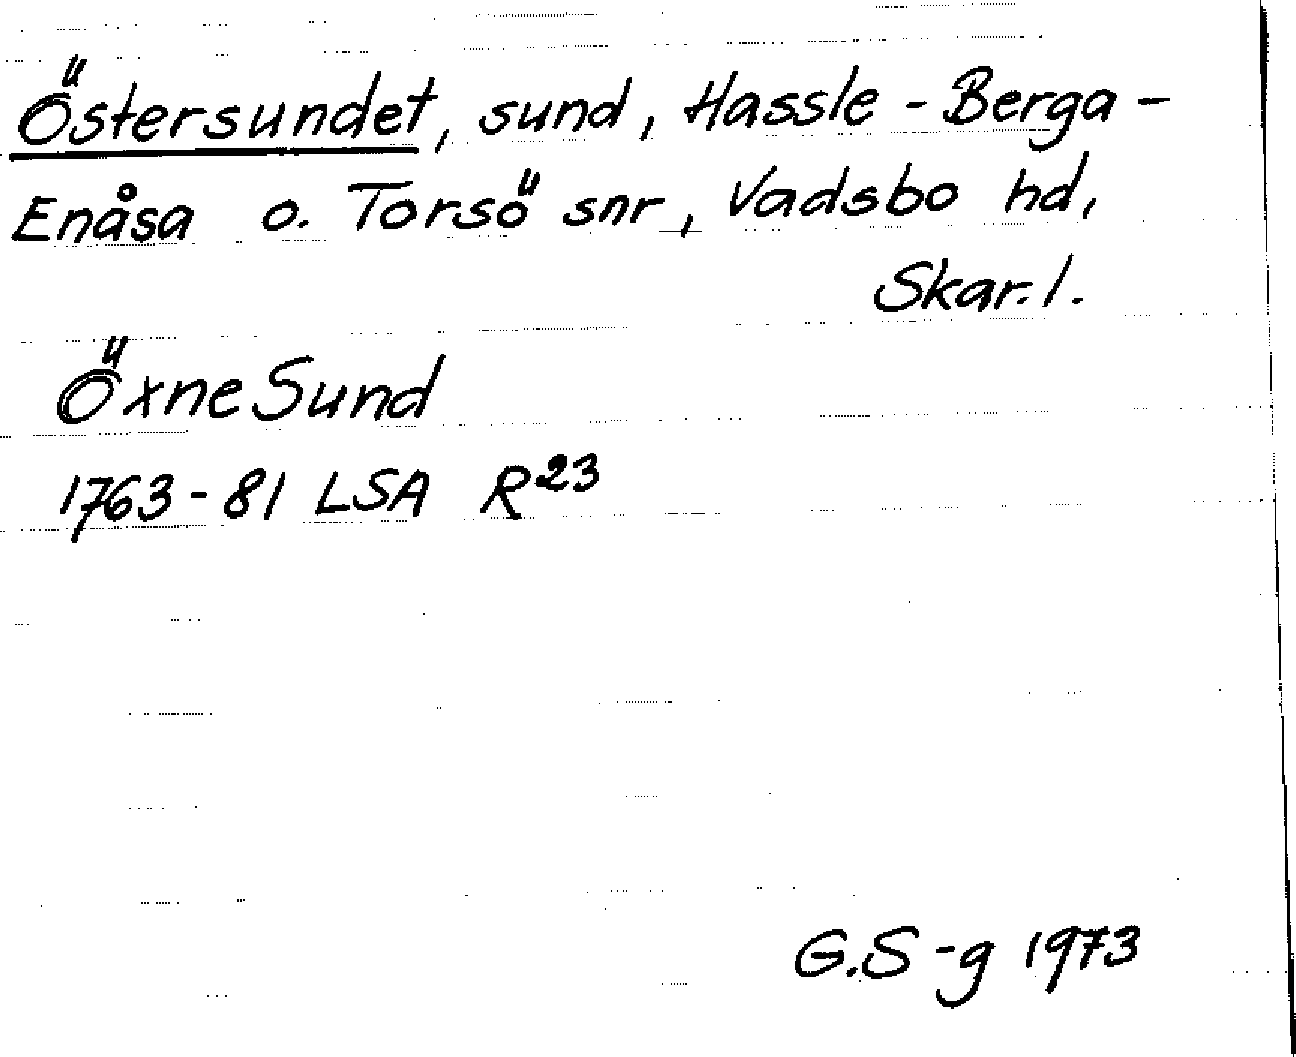 Östersundet, sund, Hassle - Berga -
Enåsa o. Torsö snr, Vadsbo hd,
Skar. l.
Öxne Sund
1763-81 LSA R23
G.S-g 1973